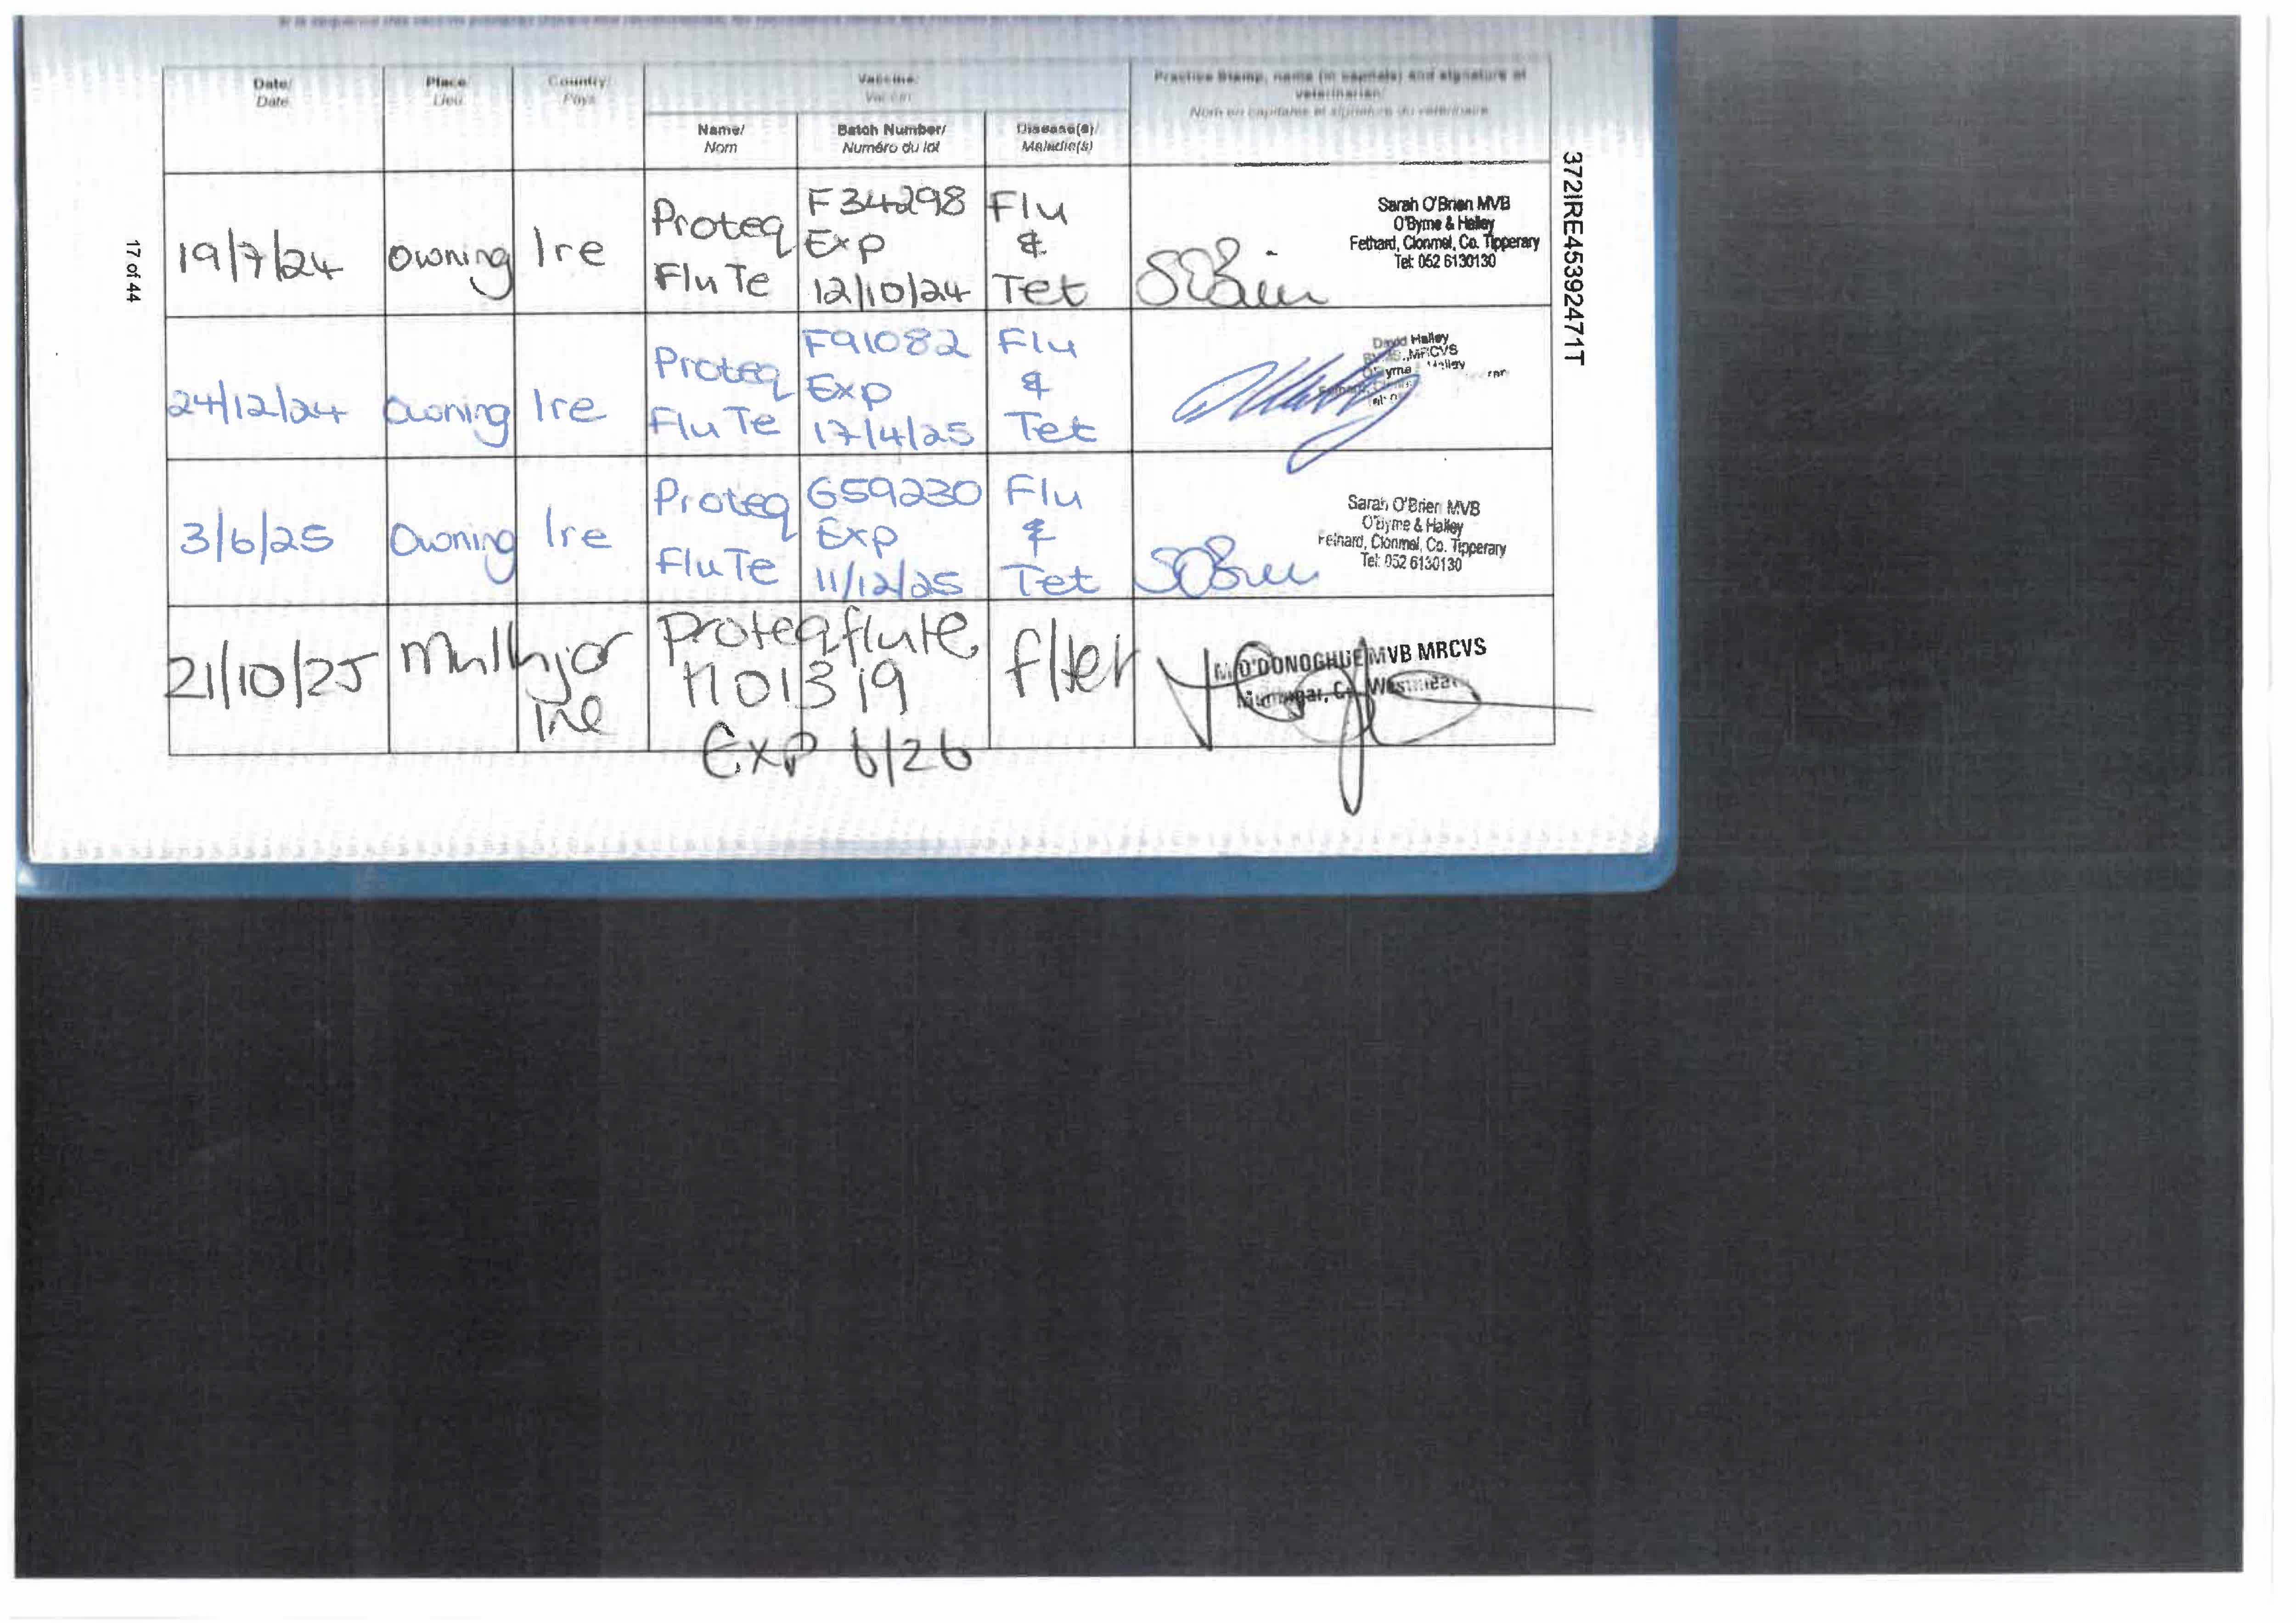 Date/
Date
Place
Lieu
Country/
Pays
Vaccine/
Vaccin
Practice Stamp, name (in capitals) and signature of
veterinarian/
Nom en capitales et signature du vétérinaire
Name/
Nom
Batch Number/
Numéro du lot
Disease(s)/
Maladie(s)
19/7/24 Owning Ire
Proteq
Flu Te
F34298
Exp
12/10/24
Flu
&
Tet
Sarah O'Brien MVB
O'Byrne & Halley
Fethard, Clonmel, Co. Tipperary
Tel: 052 6130130
SOBrien
24/12/24 Owning Ire
Proteq
Flu Te
F91082
Exp
17/4/25
Flu
&
Tet
David Halley
MRCVS
3/6/25 Owning Ire
Proteq
Flu Te
G59230
Exp
11/12/25
Flu
&
Tet
Sarah O'Brien MVB
O'Byrne & Halley
Fethard, Clonmel, Co. Tipperary
Tel: 052 6130130
SOBrien
21/10/25
Ire
Proteqflute
Exp 6/26
O'DONOGHUE MVB MRCVS
Mullingar, Co. Westmeath
17 of 44
372IRE45392471T